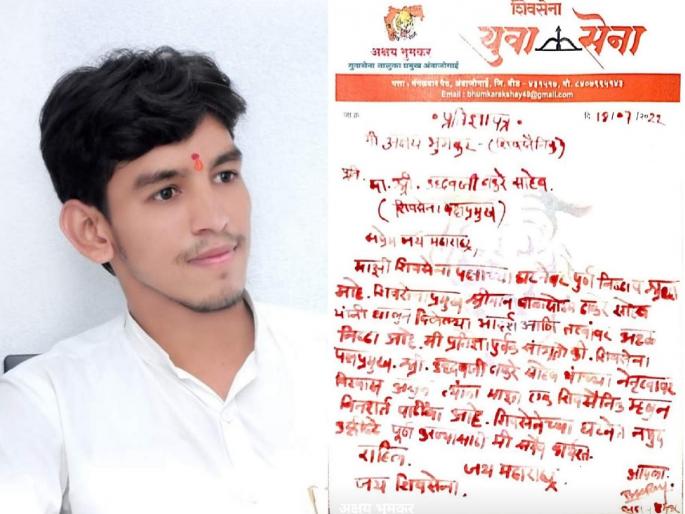 शिवसेना
युवा सेना
अक्षय भुमकर
युवासेना तालुका प्रमुख अंबाजोगाई
पत्ता : मंगळवार पेठ, अंबाजोगाई, जि. बीड - ४३१५१७, मो.
Email : bhumkarakshay49@gmail.com
जा.क्र. दि. 18/07/2022
प्रतिज्ञापत्र
मी अक्षय भुमकर - (शिवसैनिक)
प्रति,
मा. श्री. उद्धवजी ठाकरे साहेब
(शिवसेना पक्षप्रमुख)
सप्रेम जय महाराष्ट्र,
माझी शिवसेना पक्षाच्या घटनेवर पूर्ण निष्ठा
आहे. शिवसेना प्रमुख बाळासाहेब ठाकरे साहेब
यांनी घालून दिलेल्या आदर्श आणि तत्वांवर अढळ
निष्ठा आहे. मी प्रतिज्ञा पूर्वक सांगतो की, शिवसेना
पक्षप्रमुख श्री. उद्धवजी ठाकरे साहेब यांच्या नेतृत्वावर
विश्वास असून त्यांना माझा एक शिवसैनिक म्हणून
बिनशर्त पाठींबा आहे. शिवसेनेच्या घटनेत नमूद
उद्दिष्टे पूर्ण करण्यासाठी मी सदैव कार्यरत
राहिल.
जय महाराष्ट्र
आपला
जय शिवसेना.
अक्षय भुमकर